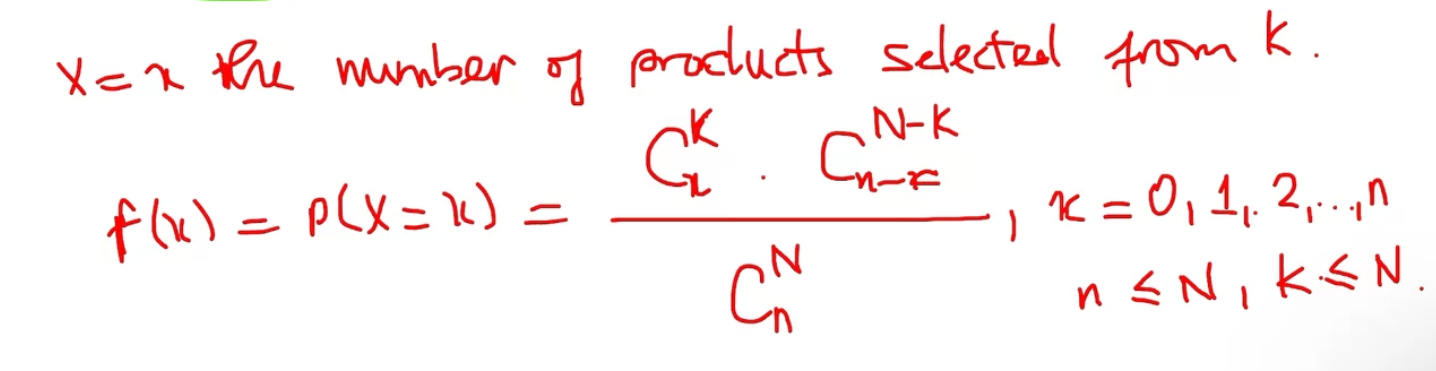 X=x the number of products selected from k.
f(x) = P(X=x) = (C^K_x . C^{N-K}_{n-x}) / C^N_n , x = 0, 1, 2,...,n
n ≤ N, k ≤ N.